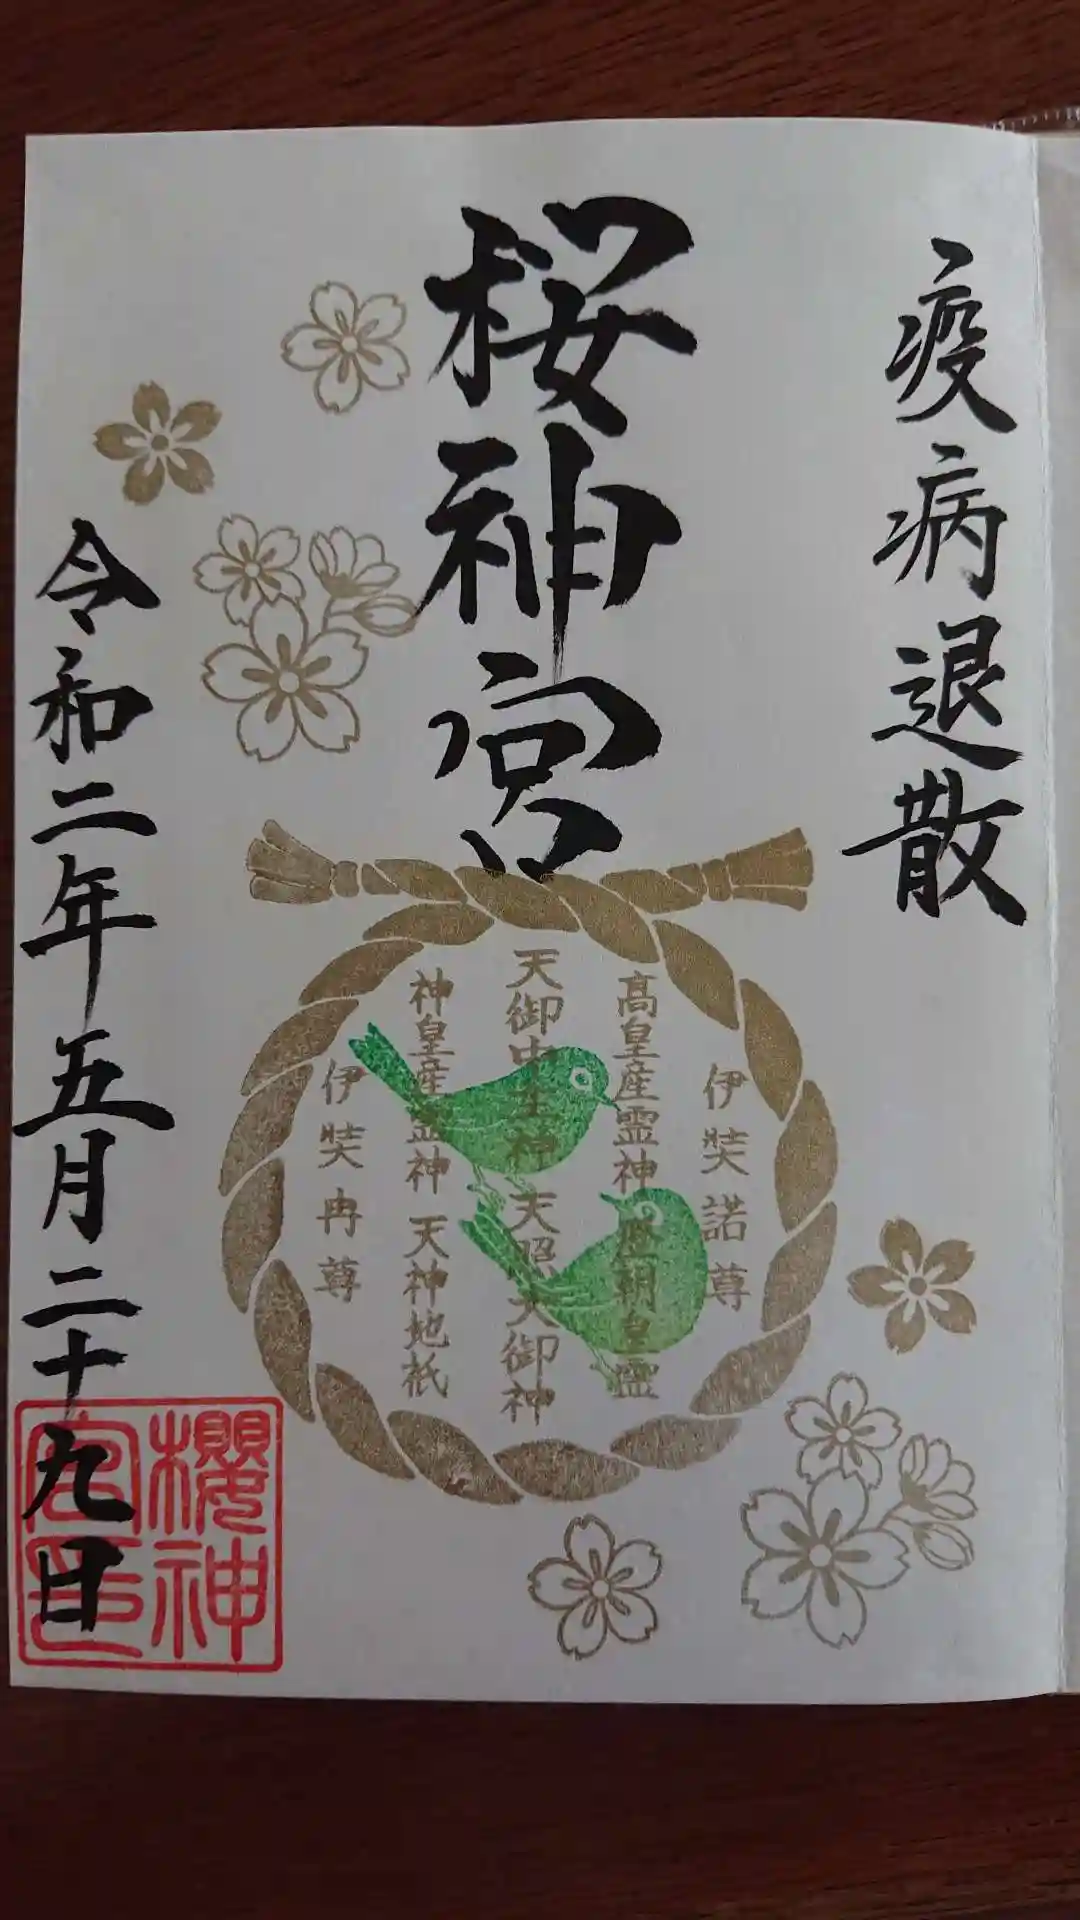 疫病退散
桜神宮
伊弉諾尊
高皇産霊神 歴朝皇霊
天御中主神 天照大御神
神皇産霊神 天神地祇
伊弉冉尊
令和二年五月二十九日
櫻神
宮印